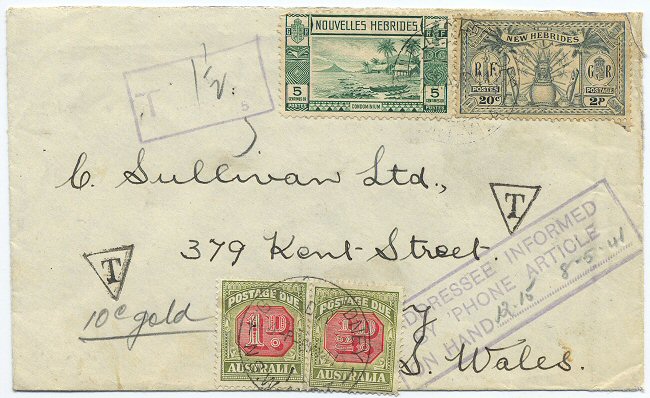 NOUVELLES HEBRIDES
RF
5 CENTIMES OR POSTES
CONDOMINIUM
5
NEW HEBRIDES
R.F.
G R
POSTES
POSTAGE
20c
2P
T
1½
5
C. Sullivan Ltd.,
T
379 Kent-Street.
T
10c gold
ADDRESSEE INFORMED
'PHONE ARTICLE
ON HAND 12-15 8-5-41
S. Wales.
POSTAGE DUE
1D
AUSTRALIA
POSTAGE DUE
½D
AUSTRALIA
SYDNEY